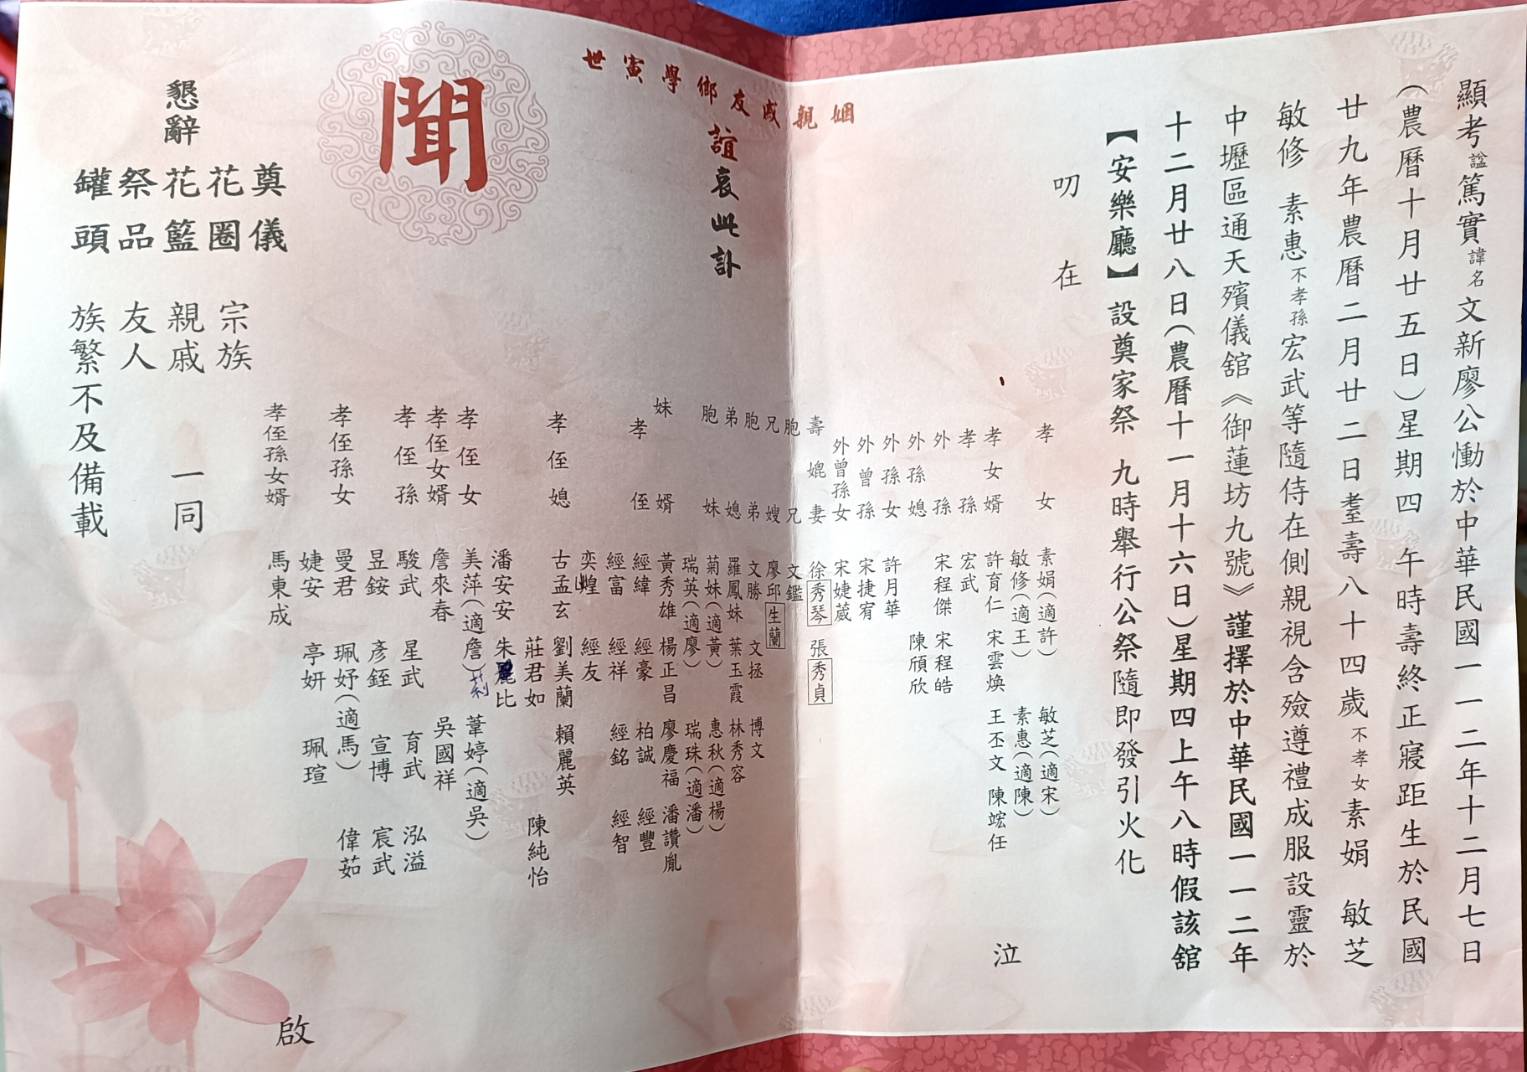 顯考諡篤實諱名文新廖公慟於中華民國一一二年十二月七日
(農曆十月廿五日)星期四 午時壽終正寢距生於民國
廿九年農曆二月廿二日耋壽八十四歲不孝女素娟 敏芝
敏修 素惠不孝孫宏武等隨侍在側親視含殮遵禮成服設靈於
中壢區通天殯儀舘《御蓮坊九號》謹擇於中華民國一一二年
十二月廿八日(農曆十一月十六日)星期四上午八時假該舘
【安樂廳】設奠家祭 九時舉行公祭隨即發引火化
叨在
姻親戚友鄉學寅世
誼哀此訃
聞
孝女 素娟(適許) 敏芝(適宋)
敏修(適王) 素惠(適陳)
孝女婿 許育仁 宋雲煥 王丕文 陳竤任
孝孫 宏武
外孫 宋程傑 宋程皓
外孫媳 陳頎欣
外孫女 許月華
外曾孫 宋捷宥
外曾孫女 宋婕葳
壽媲妻 徐秀琴 張秀貞
胞兄 文鑑
兄嫂 廖邱生蘭
胞弟 文勝 文拯 博文
弟媳 羅鳳妹 葉玉霞 林秀容
胞妹 菊妹(適黃) 惠秋(適楊)
瑞英(適廖) 瑞珠(適潘)
妹婿 黃秀雄 楊正昌 廖慶福 潘讚胤
孝侄 經緯 經豪 柏誠 經豐
經富 經祥 經銘 經智
奕煌 經友
孝侄媳 古孟玄 劉美蘭 賴麗英
莊君如 陳純怡
潘安安 朱 比
孝侄女 美萍(適詹) 莉 葦婷(適吳)
孝侄女婿 詹來春 吳國祥
孝侄孫 駿武 星武 育武 泓溢
昱銨 彥銍 宣博 宸武
孝侄孫女 曼君 珮妤(適馬) 偉茹
婕安 亭妍 珮瑄
孝侄孫女婿 馬東成
泣
啟
懇辭
奠儀
花圈
花籃
祭品
罐頭
宗族
親戚 一同
友人
族繁不及備載